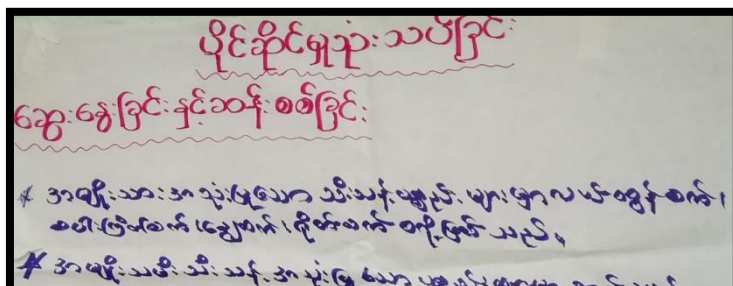 ပိုင်ဆိုင်မှုသုံးသပ်ခြင်း
ဆွေးနွေးခြင်းနှင့်ဆန်းစစ်ခြင်း
* အမျိုးသားအသုံးပြုသော သီးသန့်ပစ္စည်းများမှာလယ်ထွန်စက်၊
စပါးခြွေစက်၊ ရိတ်စက် စသည်တို့ဖြစ်သည်။
* အမျိုးသမီးသီးသန့်အသုံးပြုသော